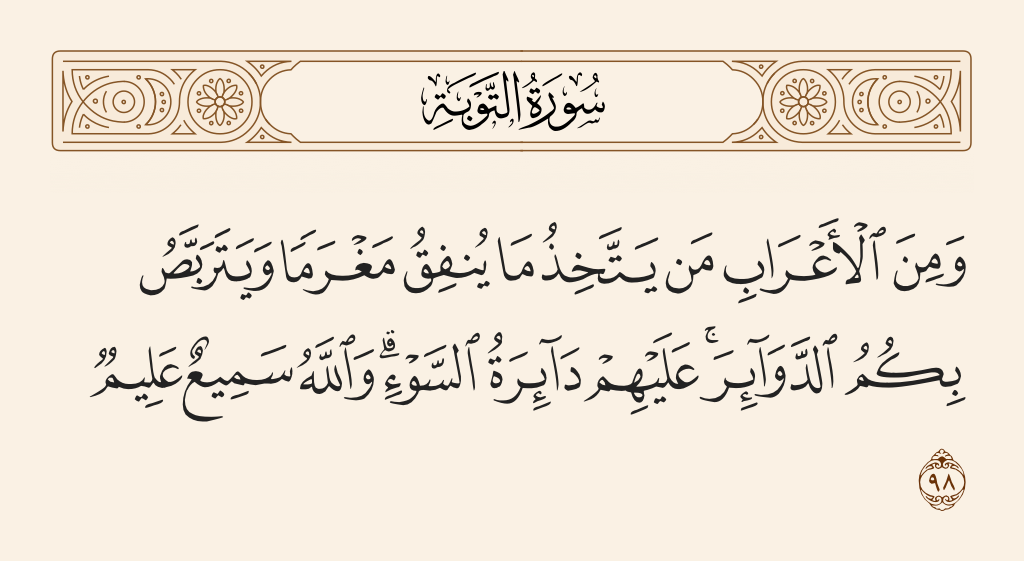 سُورَةُ التَّوْبَةِ
وَمِنَ ٱلْأَعْرَابِ مَن يَتَّخِذُ مَا يُنفِقُ مَغْرَمًا وَيَتَرَبَّصُ
بِكُمُ ٱلدَّوَآئِرَ ۚ عَلَيْهِمْ دَآئِرَةُ ٱلسَّوْءِ ۗ وَٱللَّهُ سَمِيعٌ عَلِيمٌ
٩٨